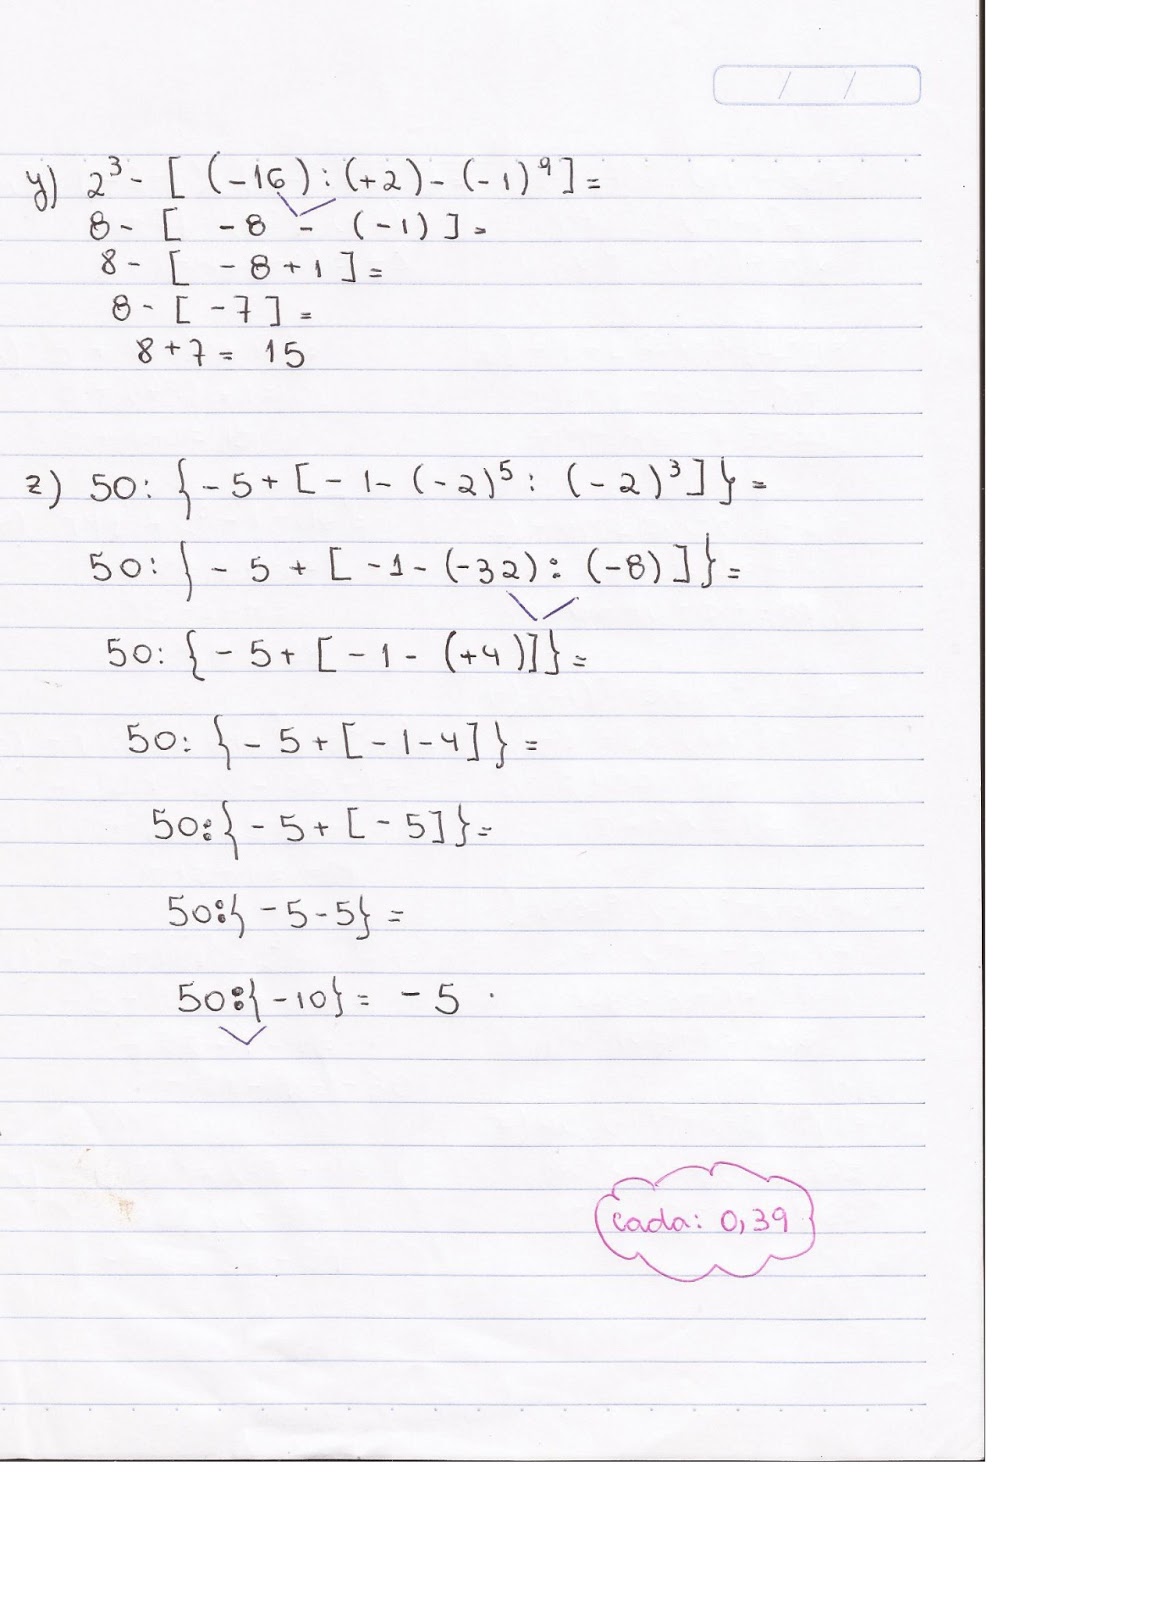 y) 2³- [ (-16) : (+2) - (-1)⁹ ] =
8 - [ -8 - (-1) ] =
8 - [ -8 + 1 ] =
8 - [ -7 ] =
8 + 7 = 15
z) 50: { - 5 + [ - 1 - (-2)⁵ : (-2)³ ] } =
50: } - 5 + [ -1 - (-32) : (-8) ] } =
50: { - 5 + [ - 1 - (+4) ] } =
50: { - 5 + [ - 1 - 4 ] } =
50: { - 5 + [ - 5 ] } =
50: { - 5 - 5 } =
50: { - 10 } = - 5
cada: 0,39